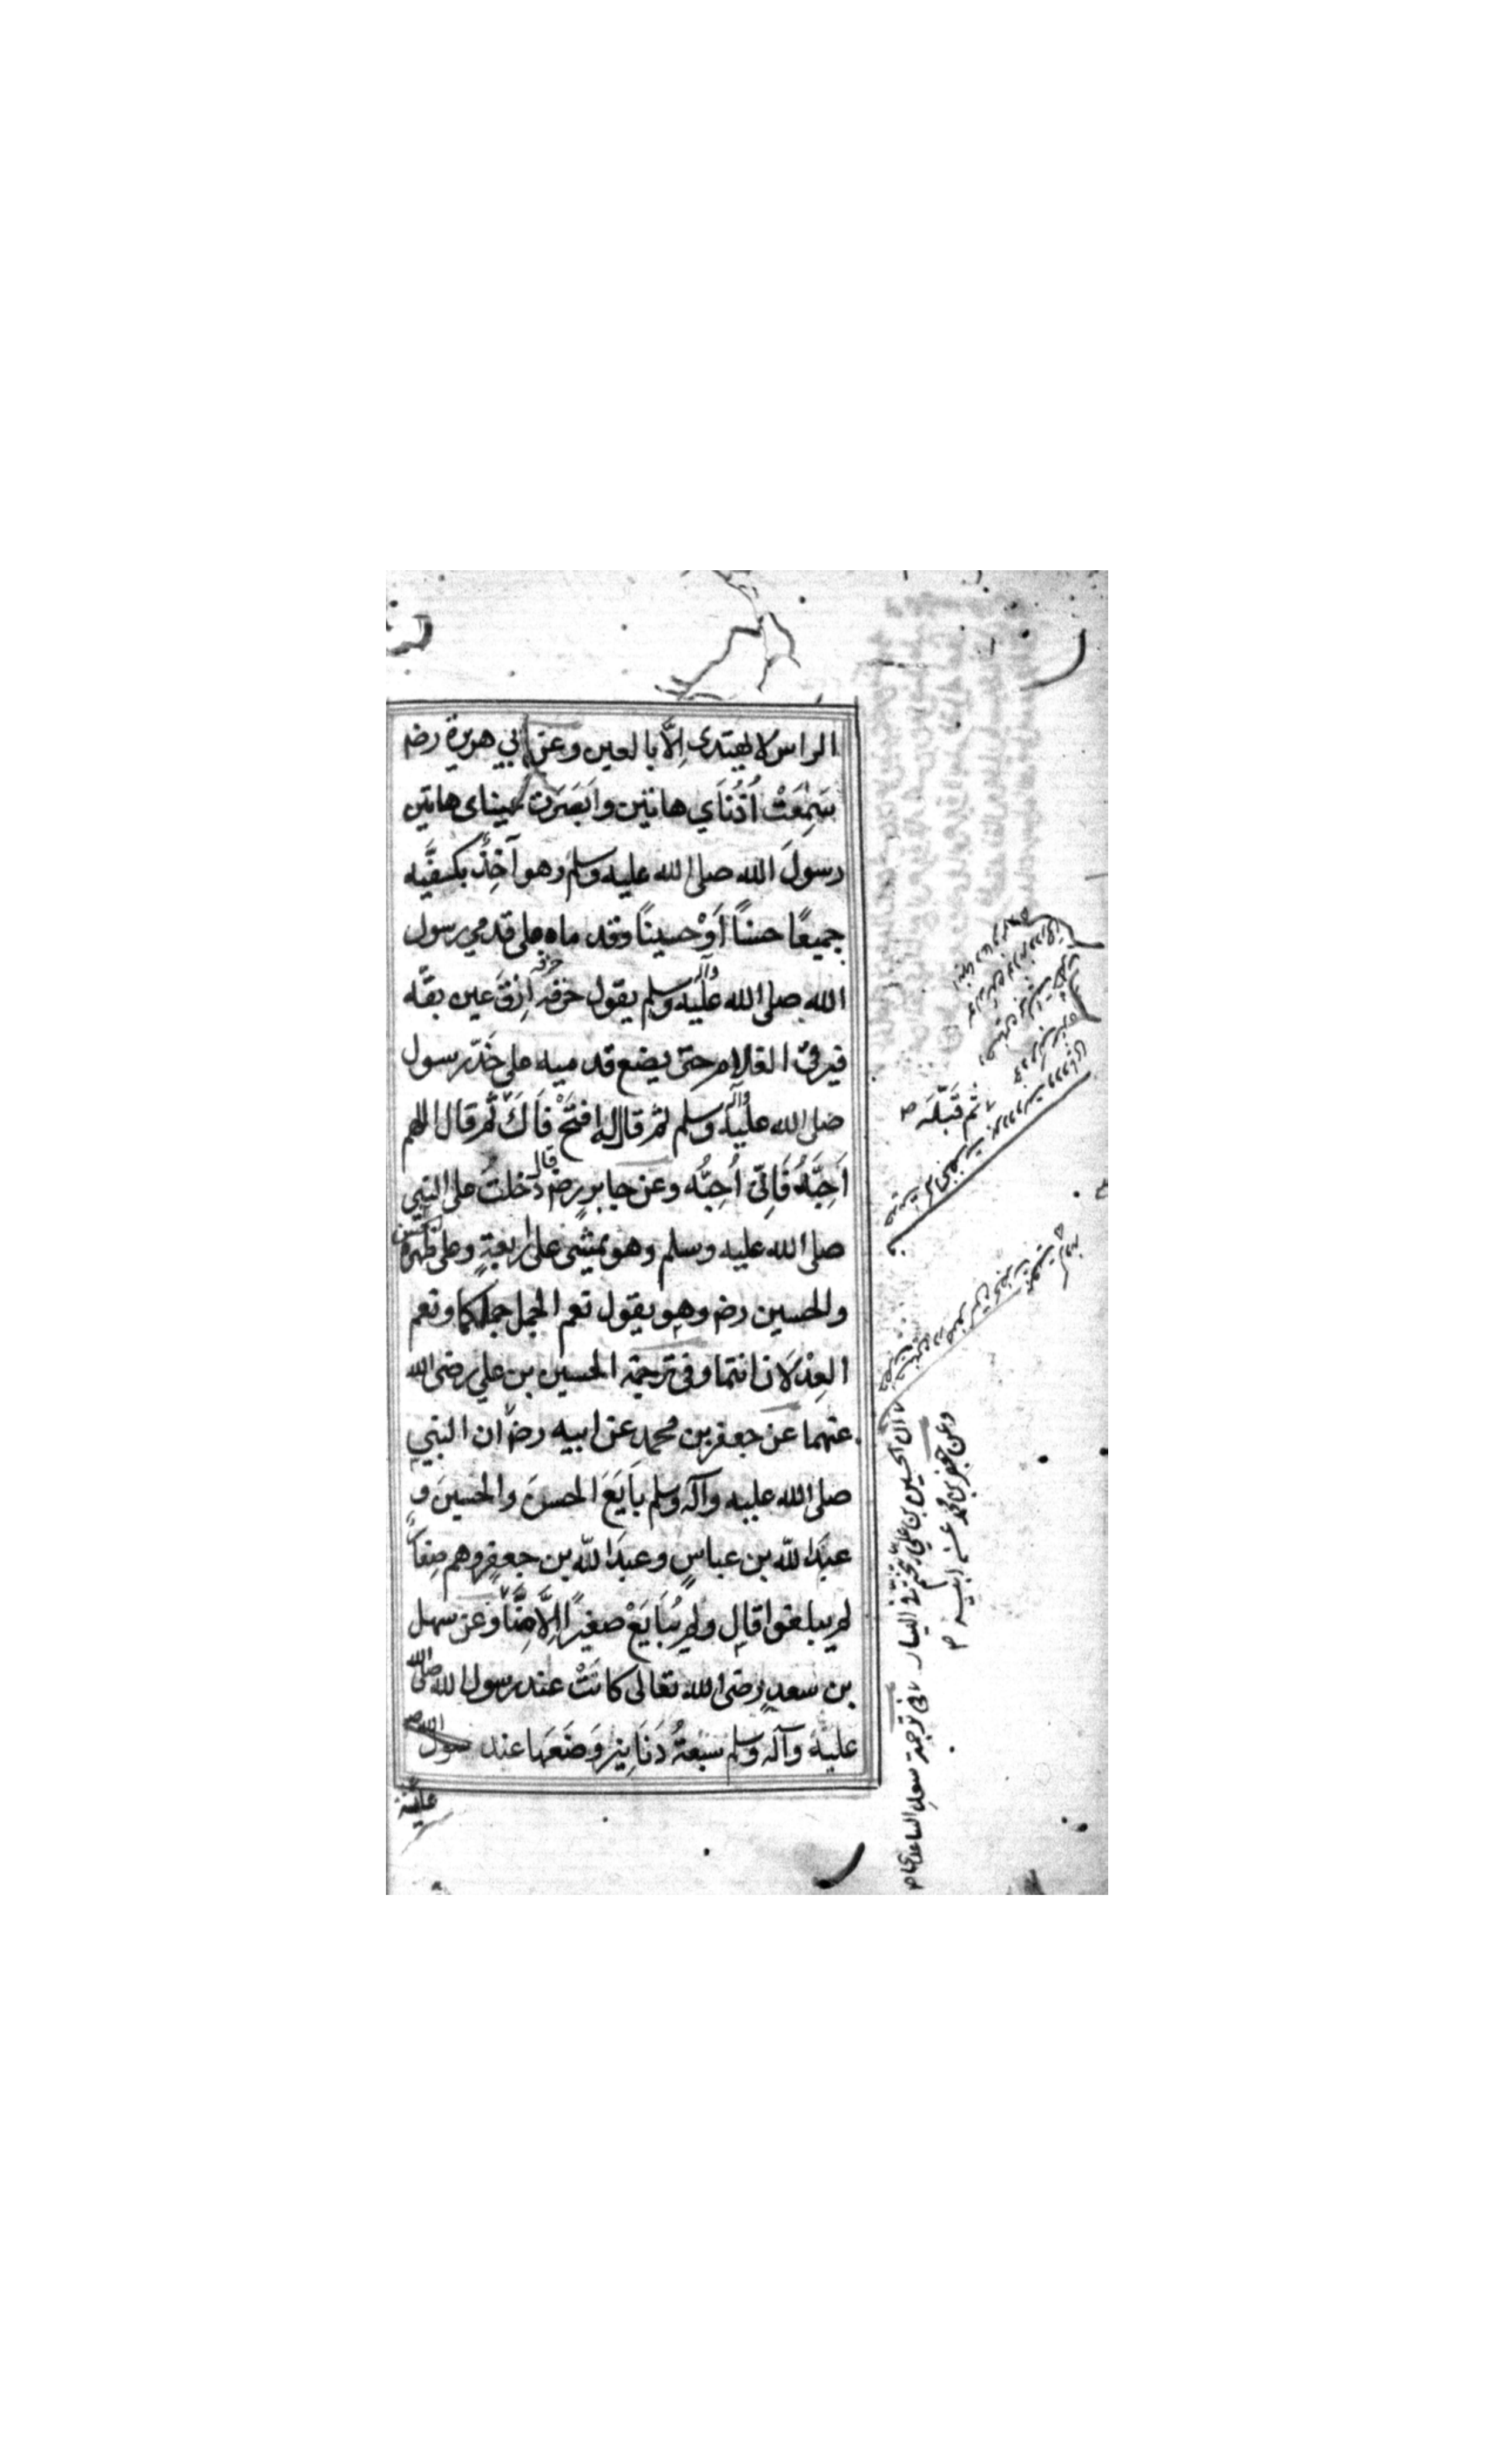 الراس لا يهتدى اِلَّا بالعين وعن ابي هريرة رضہ
سَمِعَتْ اُذُنَاي هاتين وابَصَرَت عيناى هاتين
رسولَ الله صلى الله عليه وسلم وهو آخِذٌ بكفَّيه
جميعًا حسنًا اَوْ حسينًا وقد ماه على قدمي رسول
الله صلى الله عليه وآله وسلم يقول حزقه حزقه اِرْقَ عين بقّه
فيرقى الغلام حتى يضع قدميه على خدّ رسول
صلى الله عليه وآله وسلم ثم قال له افتَحْ فَاكَ ثم قال اللهم
اَحِبَّهُ فَاِنّى اُحِبُّه وعن جابرٍ رضہ قال دخلتُ على النبي
صلى الله عليه وسلم وهو يمشى على اربعةٍ وعلى ظهره الحسن
والحسين رضہ وهو يقول نعم الجمل جملكما ونعم
العِدْلَان انتما وفى ترجمة الحسين بن علي رضى الله
عنهما عن جعفر بن محمد عن ابيه رضہ ان النبي
صلى الله عليه وآله وسلم بَايَعَ الحسنَ والحسينَ و
عبدَ الله بن عباسٍ وعبدَ الله بن جعفرٍ وهم صِغَارٌ
لم يبلغوا قال ولم يُبَايَعْ صغيرًا اِلَّا مِنَّا وعن سهل
بن سعدٍ رضى الله تعالى كانَتْ عند رسول الله صلى الله
عليه وآله وسلم سبعةُ دَنَانِيرَ وَضَعَها عند
عايشة
ثم قَبَّلَه
ان الحسين بن علي رض كان يختم فى اليسار
وعن جعفر بن محمد عن ابيه
فى ترجمة سهل الساعدى